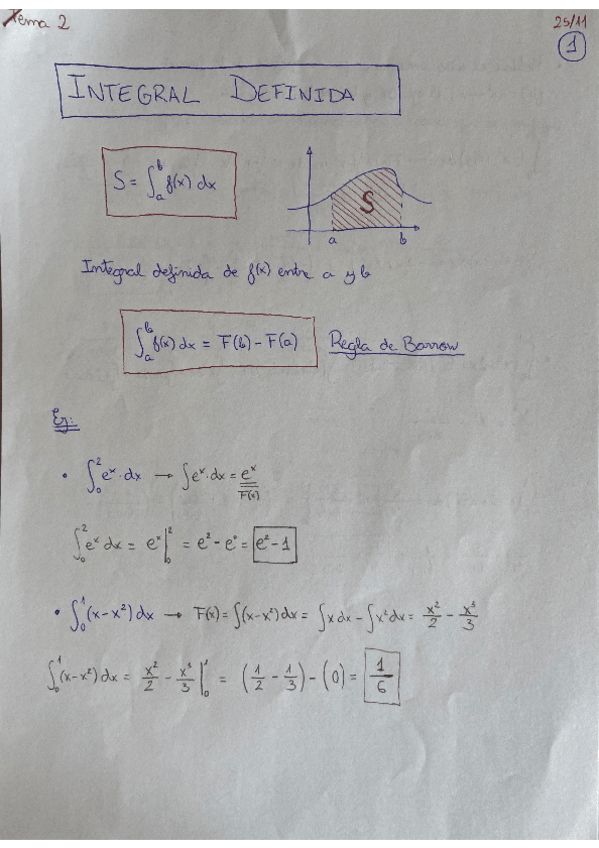 Tema 2
25/11
1
INTEGRAL DEFINIDA
S = ∫_a^b f(x) dx
S
a b
Integral definida de f(x) entre a y b
∫_a^b f(x) dx = F(b) - F(a) Regla de Barrow
Ej:
• ∫_0^2 e^x · dx → ∫ e^x · dx = e^x
F(x)
∫_0^2 e^x dx = e^x |_0^2 = e^2 - e^0 = e^2 - 1
• ∫_0^1 (x - x^2) dx → F(x) = ∫ (x - x^2) dx = ∫ x dx - ∫ x^2 dx = x^2/2 - x^3/3
∫_0^1 (x - x^2) dx = x^2/2 - x^3/3 |_0^1 = (1/2 - 1/3) - (0) = 1/6